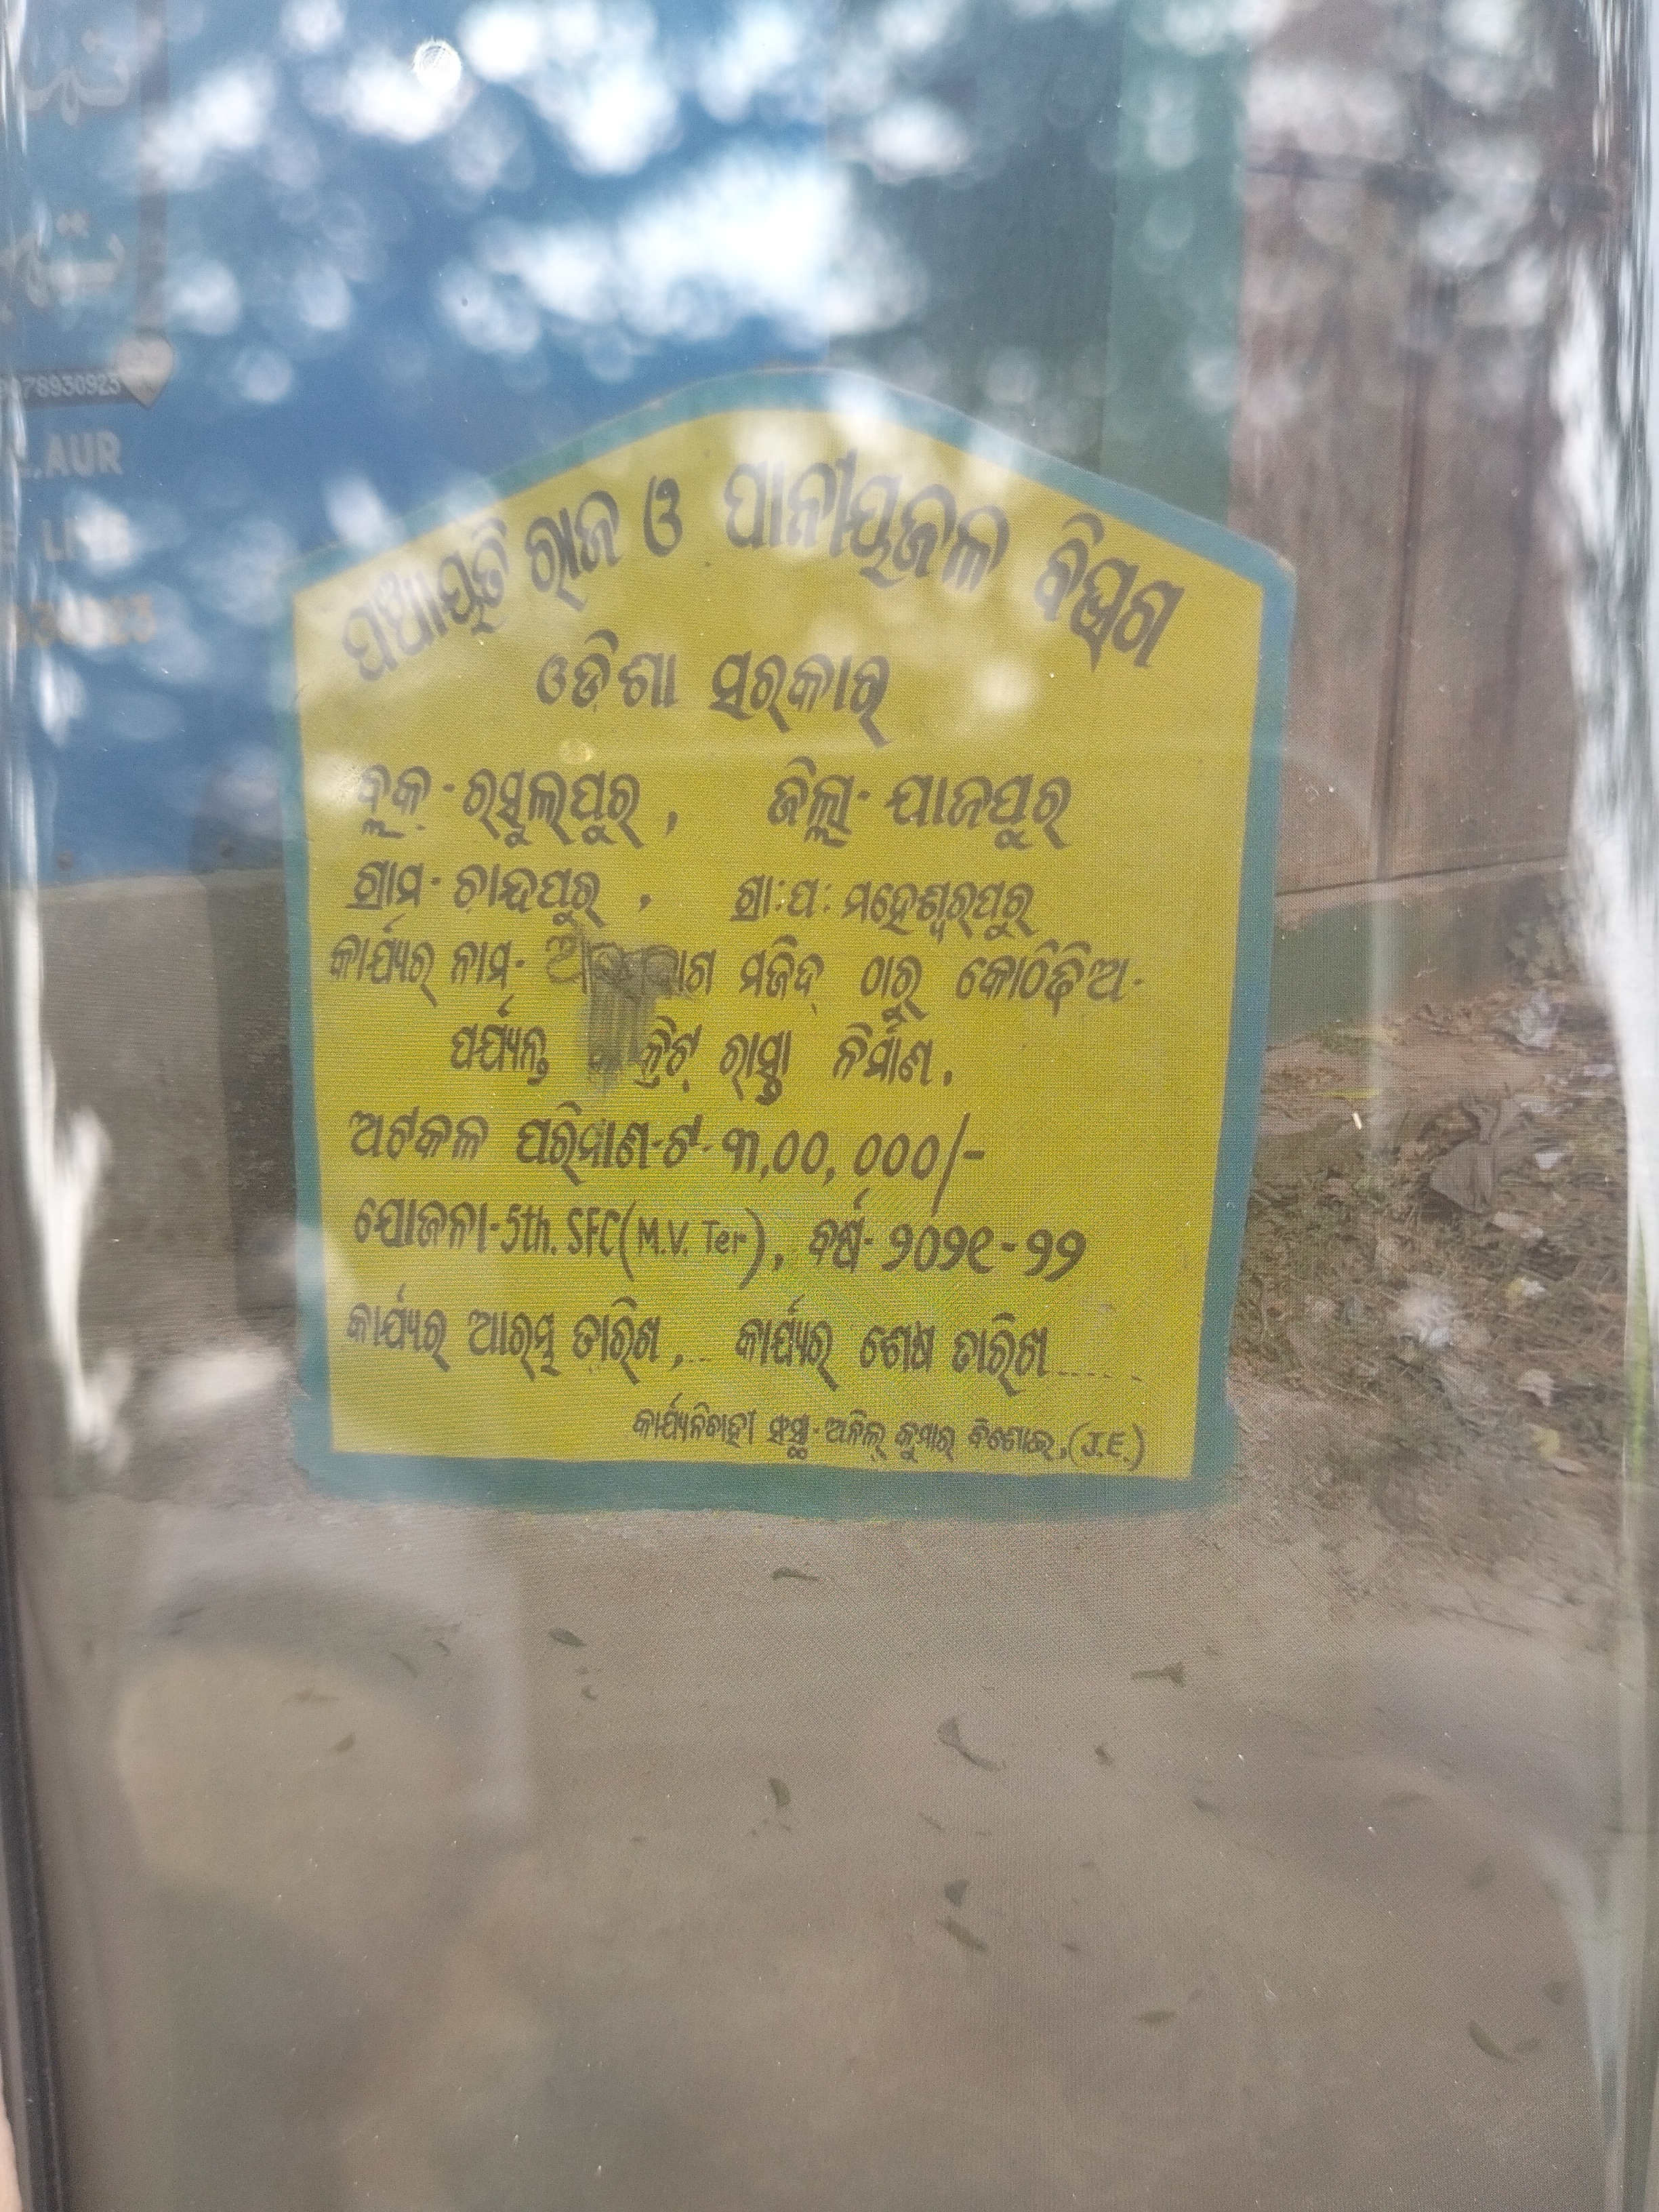 78930923
.AUR
ପଞ୍ଚାୟତି ରାଜ ଓ ପାନୀୟଜଳ ବିଭାଗ
ଓଡିଶା ସରକାର
ବ୍ଲକ- ରସୁଲପୁର, ଜିଲ୍ଲା- ଯାଜପୁର
ଗ୍ରାମ- ଚାନ୍ଦପୁର, ଗ୍ରା:ପ: ମହେଶ୍ୱରପୁର
କାର୍ଯ୍ୟର ନାମ- ମଜିଦ୍ ଠାରୁ କୋଠିଢିଅ-
ପର୍ଯ୍ୟନ୍ତ ରାସ୍ତା ନିର୍ମାଣ.
ଅଟକଳ ପରିମାଣ-ଟ- ୩,୦୦,୦୦୦/-
ଯୋଜନା-5th. SFC(M.V. Ter), ବର୍ଷ- ୨୦୨୧-୨୨
କାର୍ଯ୍ୟର ଆରମ୍ଭ ତାରିଖ,... କାର୍ଯ୍ୟର ଶେଷ ତାରିଖ......
କାର୍ଯ୍ୟନିବାହୀ ସଂସ୍ଥା- ଅନିଲ୍ କୁମାର୍ ବିଶୋଇ,(J.E.)